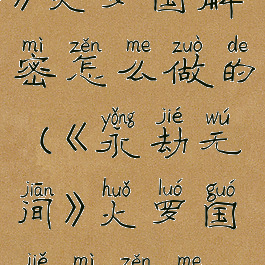 》火罗国解
mì zěn me zuò de
密怎么做的
yǒng jié wú
（《永劫无
jiān huǒ luó guó
间》火罗国
jiě mì zěn me